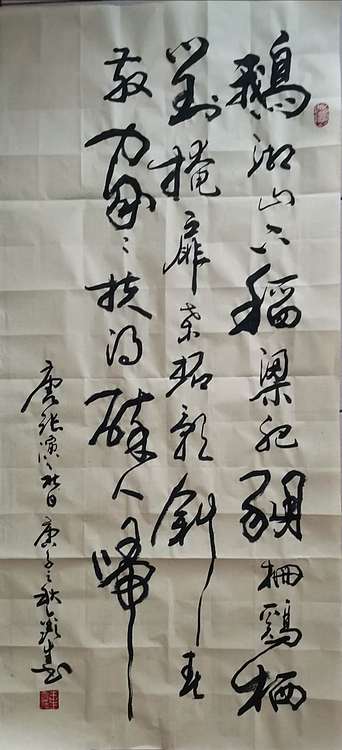 鵝湖山下稻粱肥豚柵鷄栖
對掩扉桑柘影斜春
散家〻扶得醉人歸
唐張演詩社日庚子之秋書